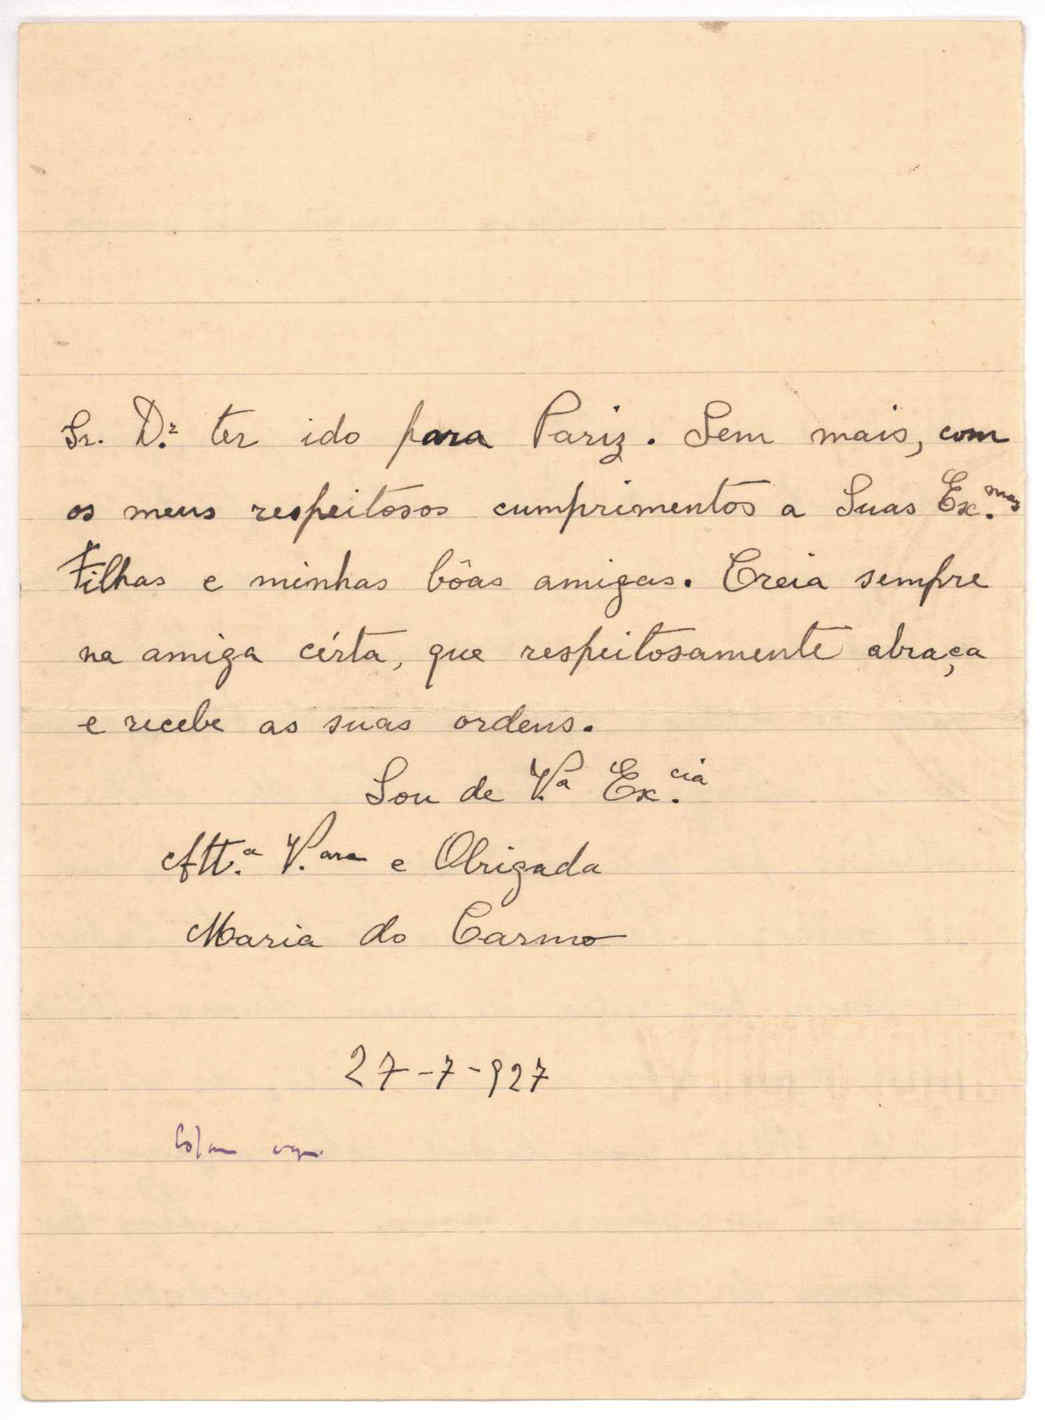 Sr. D.r ter ido para Pariz. Sem mais, com
os meus respeitosos cumprimentos a Suas Ex.mas
Filhas e minhas bôas amigas. Creia sempre
na amiga cérta, que respeitosamente abraça
e recebe as suas ordens.
Sou de V.a Ex.cia
Att.a V.ora e Obrigada
Maria do Carmo
27-7-927